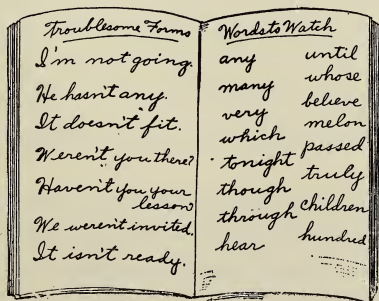 Troublesome Forms
I'm not going.
He hasn't any.
It doesn't fit.
Weren't you there?
Haven't you your
lesson?
We weren't invited.
It isn't ready.
Words to Watch
any
many
very
which
tonight
though
through
hear
until
whose
believe
melon
passed
truly
children
hundred